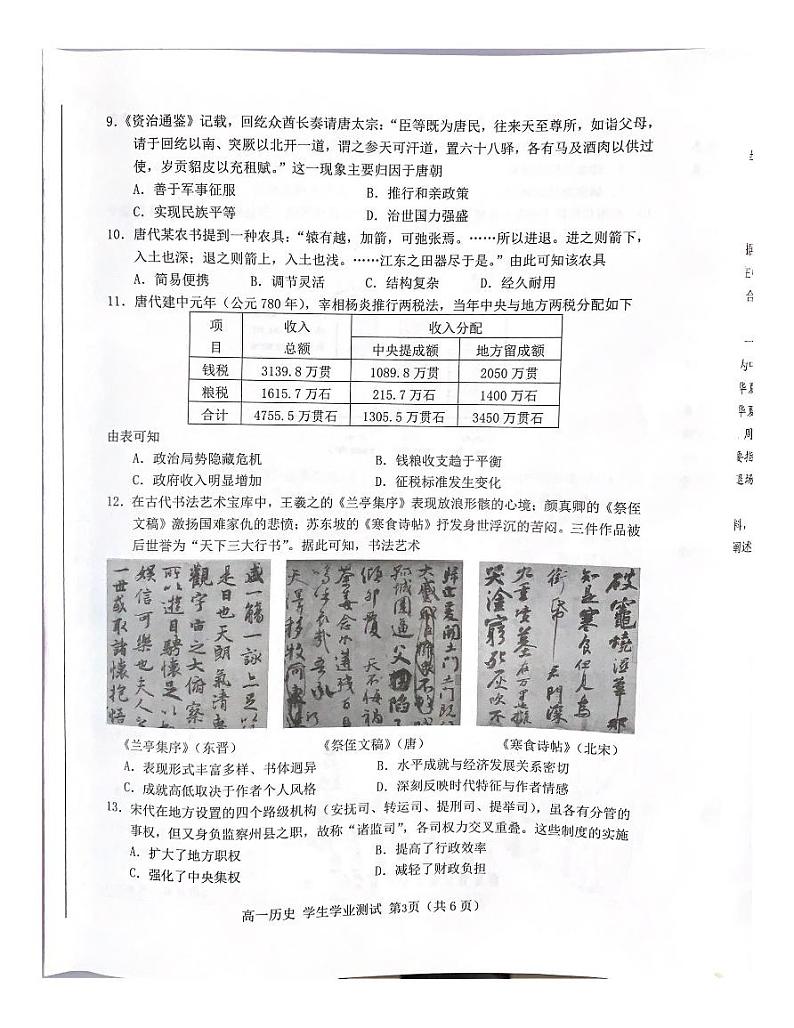 9.《资治通鉴》记载，回纥众酋长奏请唐太宗：“臣等既为唐民，往来天至尊所，如诣父母，
请于回纥以南、突厥以北开一道，谓之参天可汗道，置六十八驿，各有马及酒肉以供过
使，岁贡貂皮以充租赋。”这一现象主要归因于唐朝
A．善于军事征服
B．推行和亲政策
C．实现民族平等
D．治世国力强盛
10．唐代某农书提到一种农具：“辕有越，加箭，可弛张焉。……所以进退。进之则箭下，
入土也深；退之则箭上，入土也浅。……江东之田器尽于是。”由此可知该农具
A．简易便携 B．调节灵活 C．结构复杂 D．经久耐用
11．唐代建中元年（公元780年），宰相杨炎推行两税法，当年中央与地方两税分配如下
项目 收入总额 收入分配
中央提成额 地方留成额
钱税 3139.8万贯 1089.8万贯 2050万贯
粮税 1615.7万石 215.7万石 1400万石
合计 4755.5万贯石 1305.5万贯石 3450万贯石
由表可知
A．政治局势隐藏危机
B．钱粮收支趋于平衡
C．政府收入明显增加
D．征税标准发生变化
12．在古代书法艺术宝库中，王羲之的《兰亭集序》表现放浪形骸的心境；颜真卿的《祭侄
文稿》激扬国难家仇的悲愤；苏东坡的《寒食诗帖》抒发身世浮沉的苦闷。三件作品被
后世誉为“天下三大行书”。据此可知，书法艺术
盛一觞一詠上足以
是日也天朗氣清惠
觀宇宙之大俯察
所以遊目騁懷足以
娛信可樂也夫人
一世或取諸懷抱悟
破竈燒濕葦那
知是寒食但見烏
銜帋君門深
九重墳墓在万里也擬
哭塗窮死灰吹不
《兰亭集序》（东晋）
《祭侄文稿》（唐）
《寒食诗帖》（北宋）
A．表现形式丰富多样、书体迥异
B．水平成就与经济发展关系密切
C．成就高低取决于作者个人风格
D．深刻反映时代特征与作者情感
13．宋代在地方设置的四个路级机构（安抚司、转运司、提刑司、提举司），虽各有分管的
事权，但又身负监察州县之职，故称“诸监司”，各司权力交叉重叠。这些制度的实施
A．扩大了地方职权
B．提高了行政效率
C．强化了中央集权
D．减轻了财政负担
高一历史 学生学业测试 第3页（共6页）